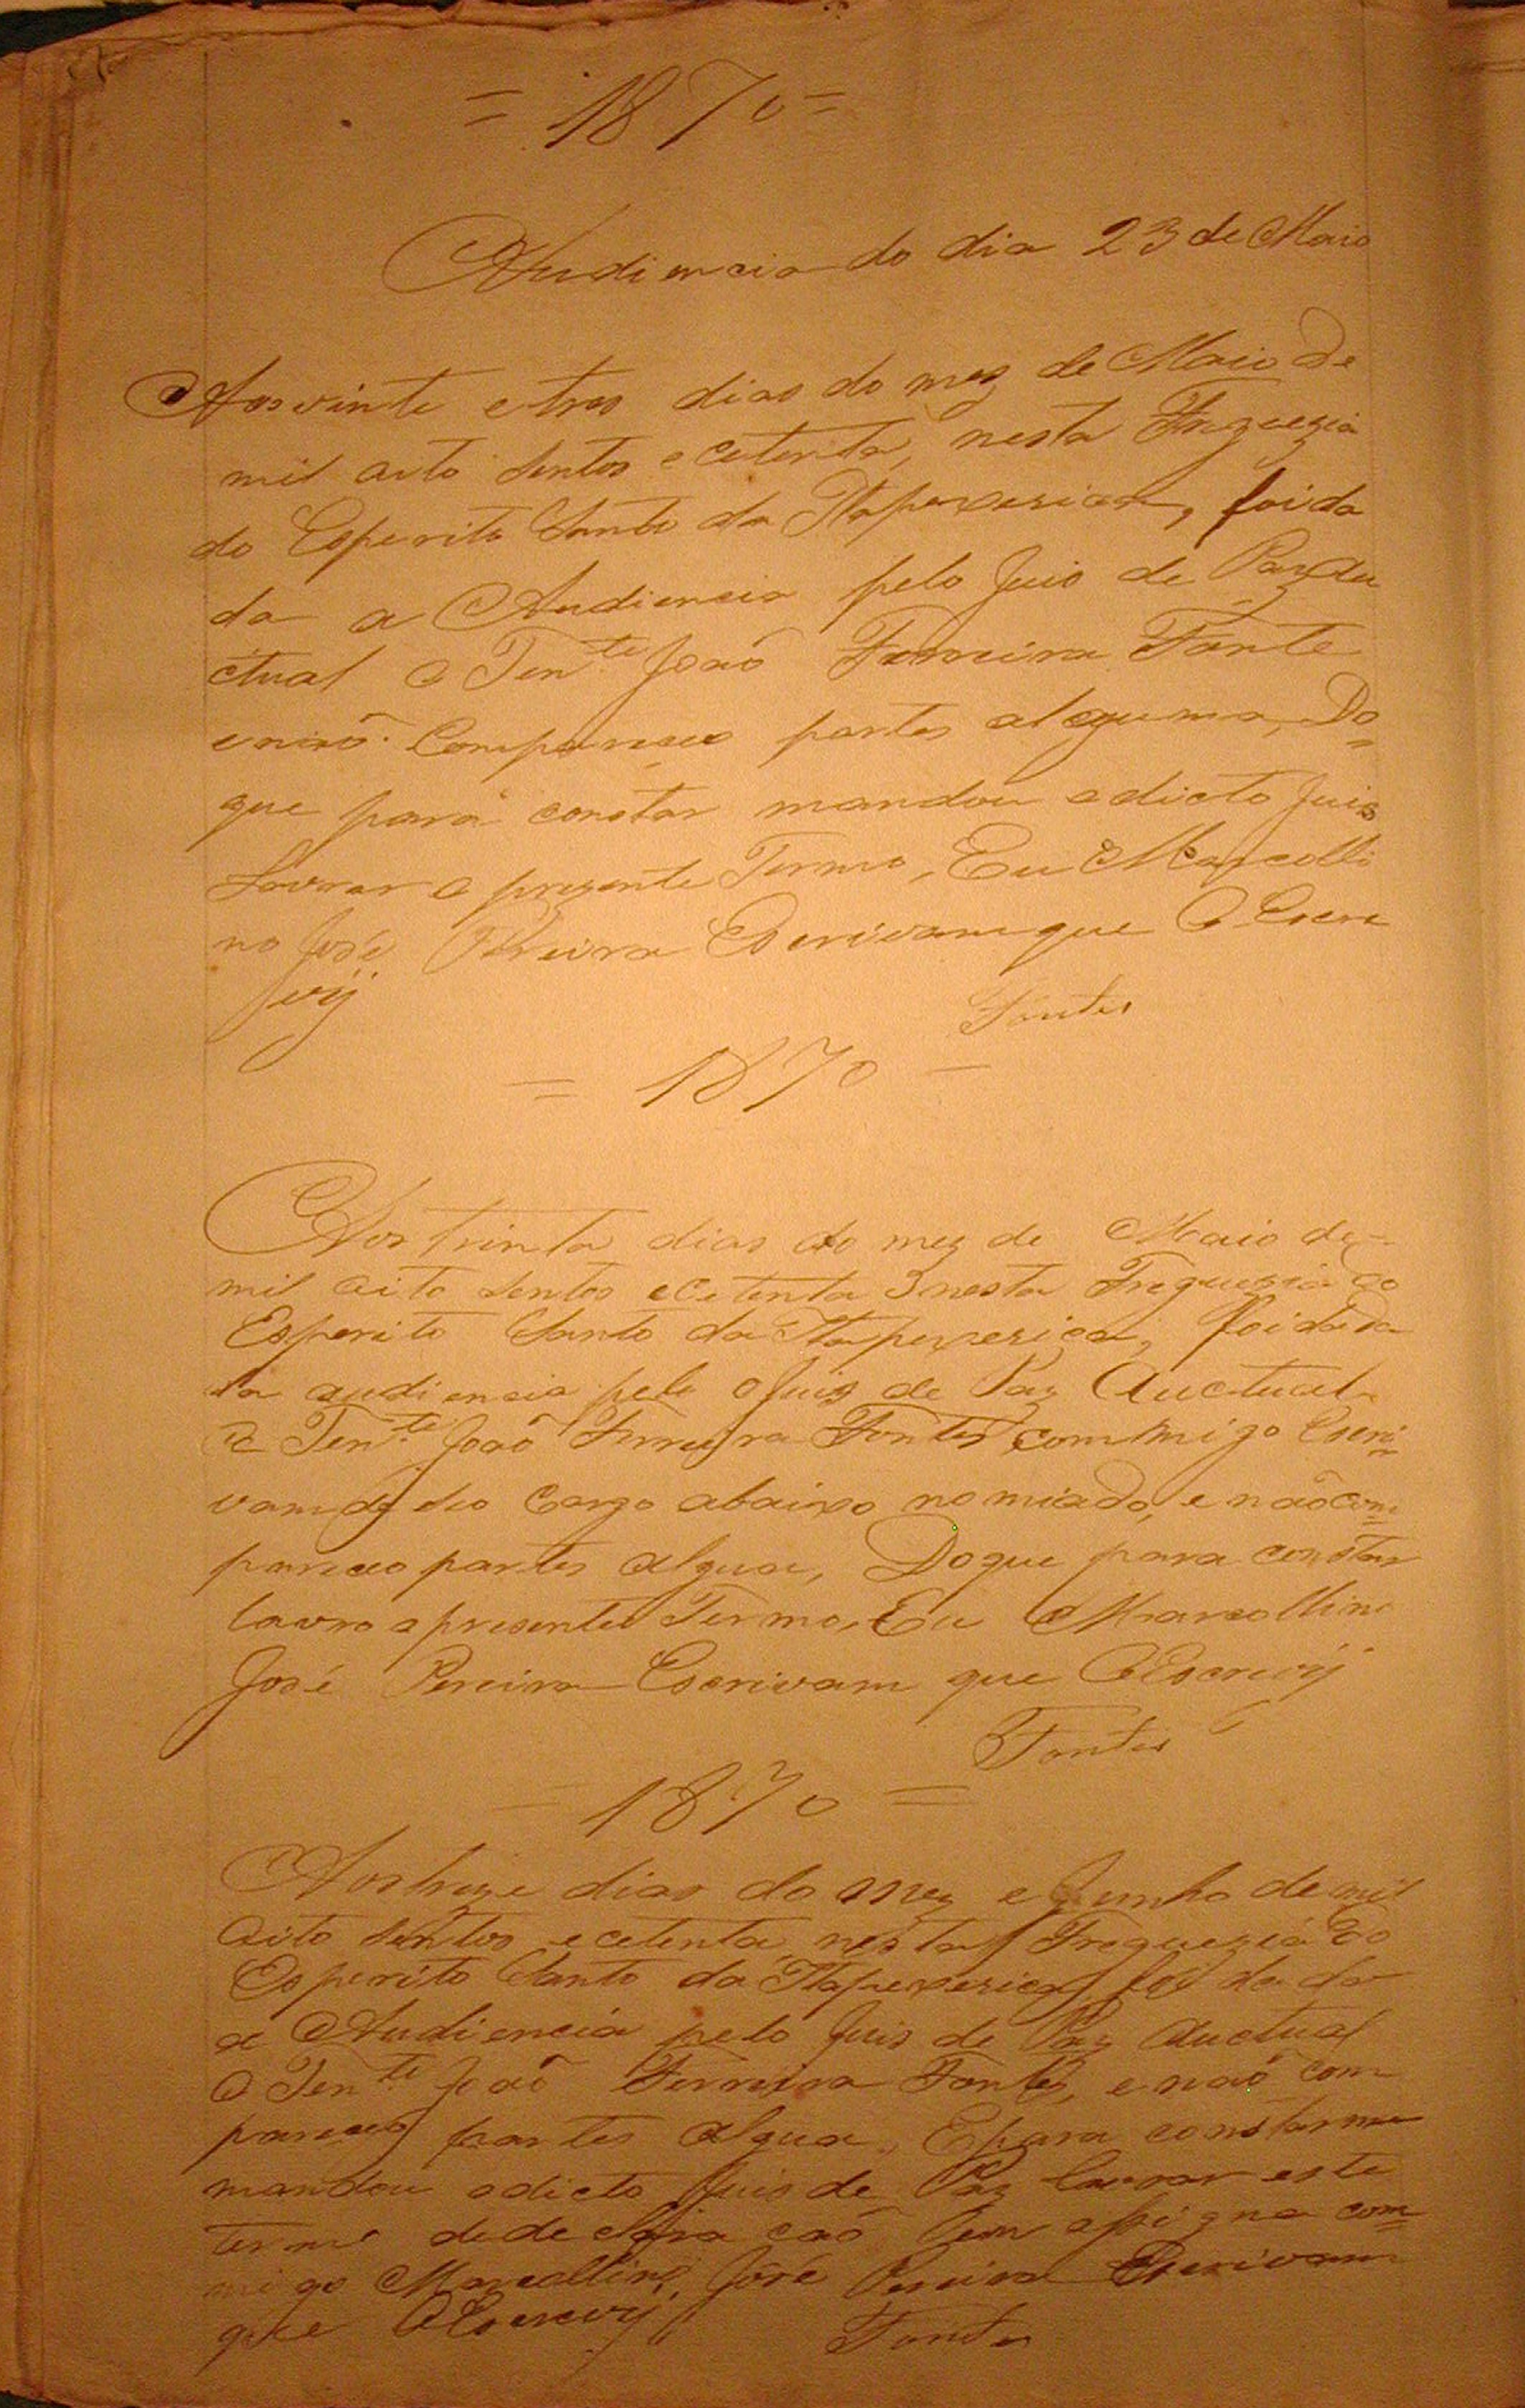 = 1870 =
Audiencia do dia 23 de Maio
Aos vinte e tres dias do mez de Maio de
mil oito sentos e cetenta, nesta Freguezia
do Esperito Santo da Itapexerica, foi da
da a Audiencia pelo Juis de Paz Au
ctual o Ten.te João Ferreira Fonte
e não Compareceo partes alguma, Do=
que para constar mandou o dicto Juis
Lavrar o prezente Termo, Eu Marcolli
no José Pereira Escrivam que O Escre
vij
Fontes
= 1870 =
Aos trinta dias do mez de Maio de
mil oito sentos e cetenta nesta Freguezia do
Esperito Santo da Itapexerica, foi dada
a audiencia pelo o Juis de Paz Auctual
o Ten.te João Ferreyra Fontes commigo Escri=
vam de seo Cargo abaixo nomiado, e não com=
pareceo partes algua, Do que para constar
lavro o presente Termo, Eu Marcollino
José Pereira Escrivam que O Escrevij
Fontes
= 1870 =
Aos treze dias do Mez e Junho de mil
oito sentos e cetenta nesta Freguezia do
Esperito Santo da Itapexerica foi da da
a Audiencia pelo Juis de Paz Auctual
O Ten.te João Ferreira Fontes, e não com
pareceo partes algua, E para constar me
mandou o dicto Juis de Paz lavrar este
termo de declara ção em assigna com=
migo Marcollino José Pereira Escrivam
que O Escrevij
Fontes